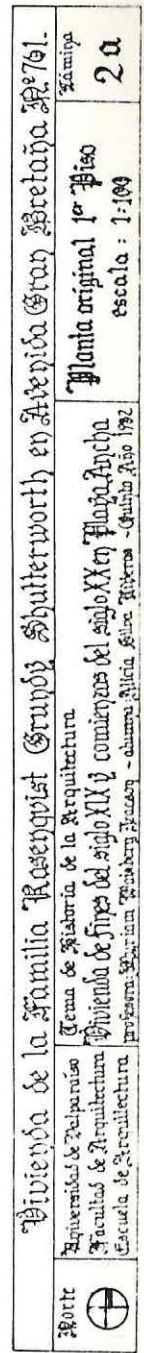 Vivienda de la Familia Rosenqvist Grundy Shutterworth en Avenida Gran Bretaña Nº761.
Norte
Universidad de Valparaíso
Facultad de Arquitectura
Escuela de Arquitectura
Tema de Historia de la Arquitectura
Vivienda de fines del siglo XIX y comienzos del siglo XX en Playa Ancha
profesora: Myriam Waisberg - alumna: Alicia Silva - Quinto Año 1982
Planta original 1er Piso
escala: 1:100
Lámina
2a